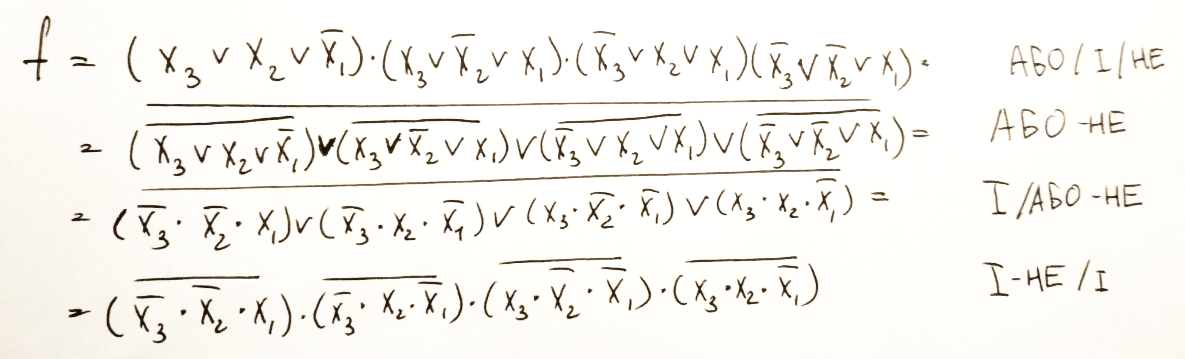 f = (X₃ ∨ X₂ ∨ X̅₁)·(X₃ ∨ X̅₂ ∨ X₁)·(X̅₃ ∨ X₂ ∨ X₁)(X̅₃ ∨ X̅₂ ∨ X₁) = АБО/І/НЕ
= \overline{(\overline{X₃ ∨ X₂ ∨ X̅₁}) ∨ (\overline{X₃ ∨ X̅₂ ∨ X₁}) ∨ (\overline{X̅₃ ∨ X₂ ∨ X₁}) ∨ (\overline{X̅₃ ∨ X̅₂ ∨ X₁})} = АБО-НЕ
= \overline{(X̅₃ · X̅₂ · X₁) ∨ (X̅₃ · X₂ · X̅₁) ∨ (X₃ · X̅₂ · X̅₁) ∨ (X₃ · X₂ · X̅₁)} = І/АБО-НЕ
= (\overline{X̅₃ · X̅₂ · X₁})·(\overline{X̅₃ · X₂ · X̅₁})·(\overline{X₃ · X̅₂ · X̅₁})·(\overline{X₃ · X₂ · X̅₁}) І-НЕ/І